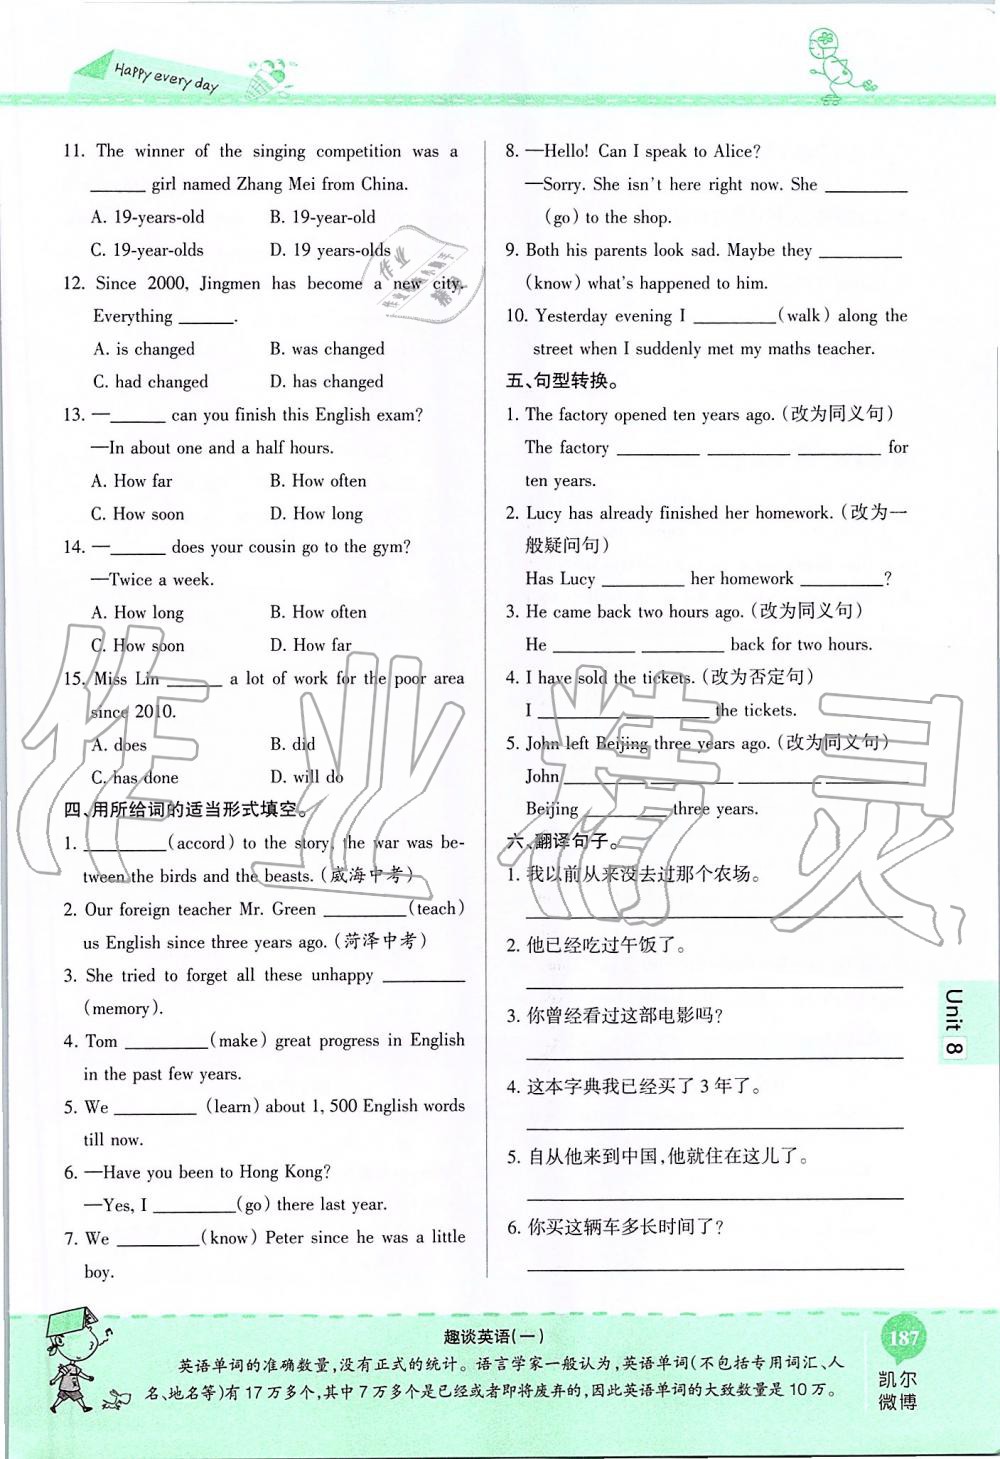 Happy every day
11. The winner of the singing competition was a
______ girl named Zhang Mei from China.
A. 19-years-old B. 19-year-old
C. 19-year-olds D. 19 years-olds
12. Since 2000, Jingmen has become a new city.
Everything ______.
A. is changed B. was changed
C. had changed D. has changed
13. —______ can you finish this English exam?
—In about one and a half hours.
A. How far B. How often
C. How soon D. How long
14. —______ does your cousin go to the gym?
—Twice a week.
A. How long B. How often
C. How soon D. How far
15. Miss Lin ______ a lot of work for the poor area
since 2010.
A. does B. did
C. has done D. will do
四、用所给词的适当形式填空。
1. _________(accord) to the story, the war was be-
tween the birds and the beasts.(威海中考)
2. Our foreign teacher Mr. Green _________(teach)
us English since three years ago.(菏泽中考)
3. She tried to forget all these unhappy _________
(memory).
4. Tom _________(make) great progress in English
in the past few years.
5. We _________ (learn) about 1, 500 English words
till now.
6. —Have you been to Hong Kong?
—Yes, I _________(go) there last year.
7. We _________(know) Peter since he was a little
boy.
8. —Hello! Can I speak to Alice?
—Sorry. She isn't here right now. She _________
(go) to the shop.
9. Both his parents look sad. Maybe they _________
(know) what's happened to him.
10. Yesterday evening I _________(walk) along the
street when I suddenly met my maths teacher.
五、句型转换。
1. The factory opened ten years ago.(改为同义句)
The factory _________ _________ _________ for
ten years.
2. Lucy has already finished her homework.(改为一
般疑问句)
Has Lucy _________ her homework _________?
3. He came back two hours ago.(改为同义句)
He _________ _________ back for two hours.
4. I have sold the tickets.(改为否定句)
I _________ _________ the tickets.
5. John left Beijing three years ago.(改为同义句)
John _________ _________ _________ _________
Beijing _________ three years.
六、翻译句子。
1. 我以前从来没去过那个农场。
2. 他已经吃过午饭了。
3. 你曾经看过这部电影吗?
4. 这本字典我已经买了 3 年了。
5. 自从他来到中国,他就住在这儿了。
6. 你买这辆车多长时间了?
Unit 8
趣谈英语(一)
英语单词的准确数量,没有正式的统计。语言学家一般认为,英语单词(不包括专用词汇、人
名、地名等)有 17 万多个,其中 7 万多个是已经或者即将废弃的,因此英语单词的大致数量是 10 万。
187
凯尔
微博
作业精灵